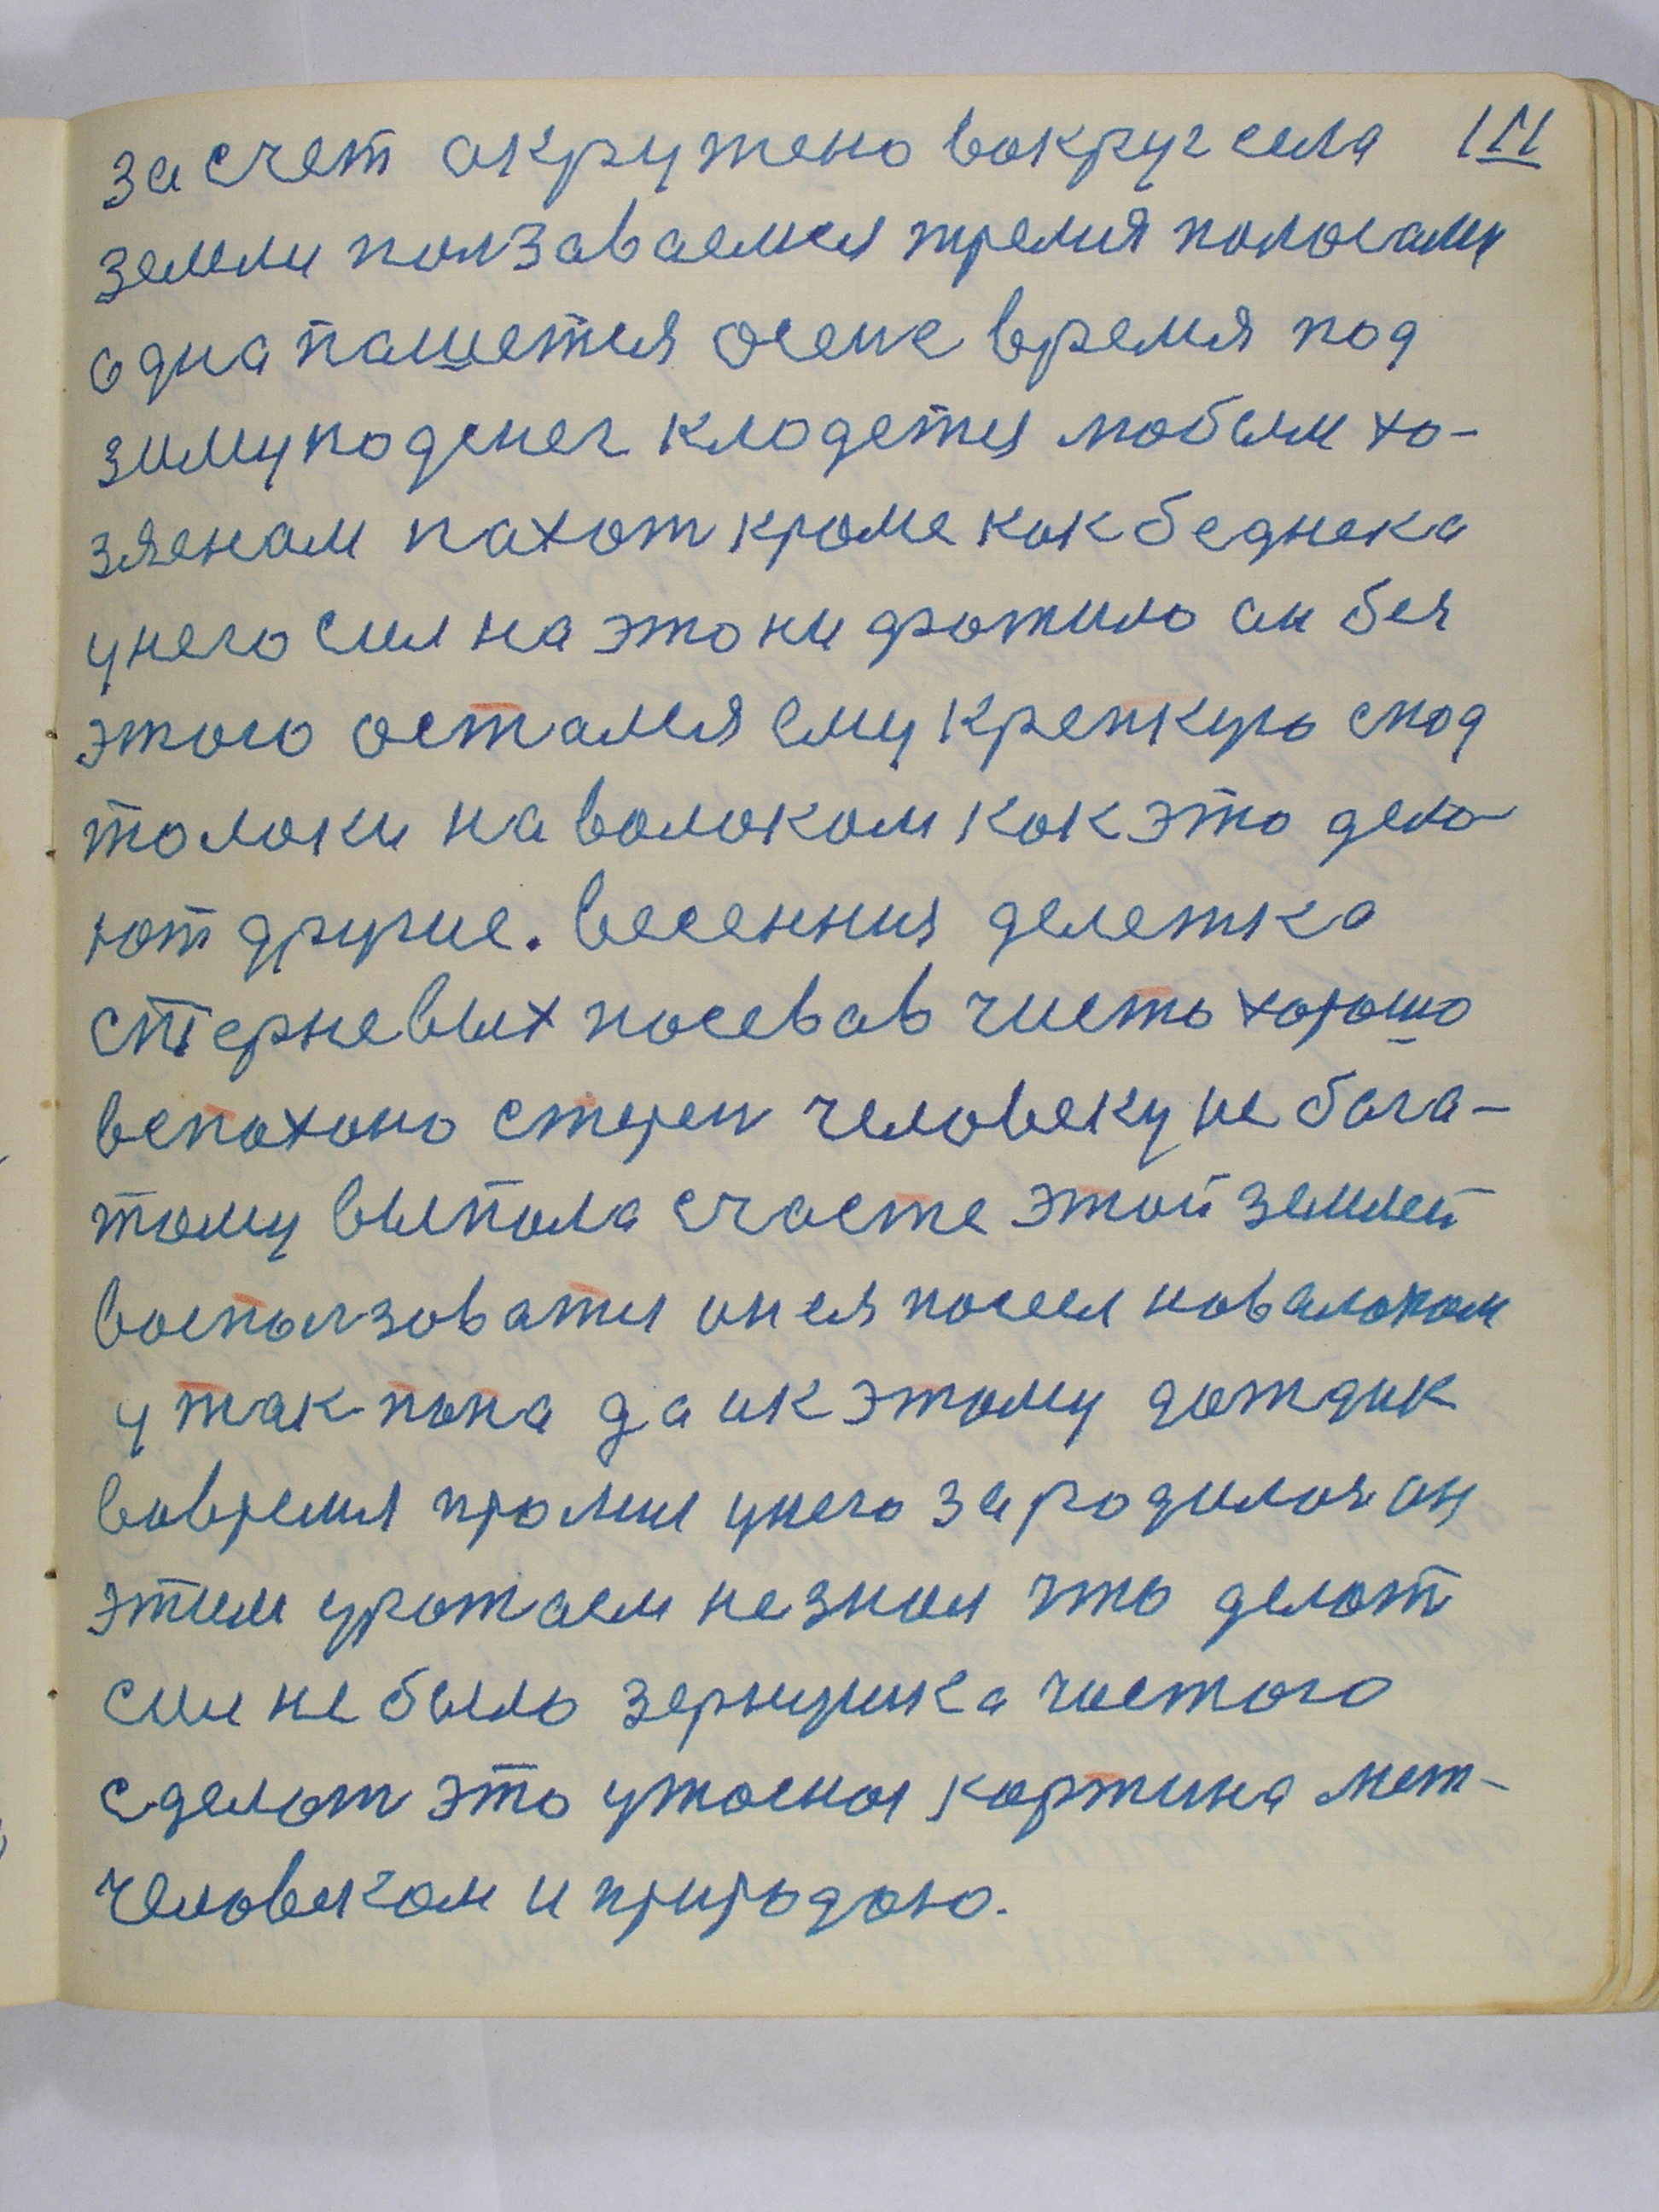 за счет акружено вокруг села 111
земли ползаваемся тремя полосами
одна пашется осене время под
зиму подснег кладется любым хо-
зяенам пахот кроме как беднека
унего сил на это ни фатило он без
этого остался ему крепкую спод
толоки на волоком как это дела
ют другие. весенния делетка
стерневых посевав чисто хорошо
вспахоно стерен человеку не бога-
тому выпола счасте этой землей
воспользоватся он ея посеел наволоком
у так пона да ик этому дождик
вовремя пролил унего зародилося он
этим урожаем не знал что делат
сили не было зернушка чистого
сделат это ужасная картина меж-
человеком и природою.